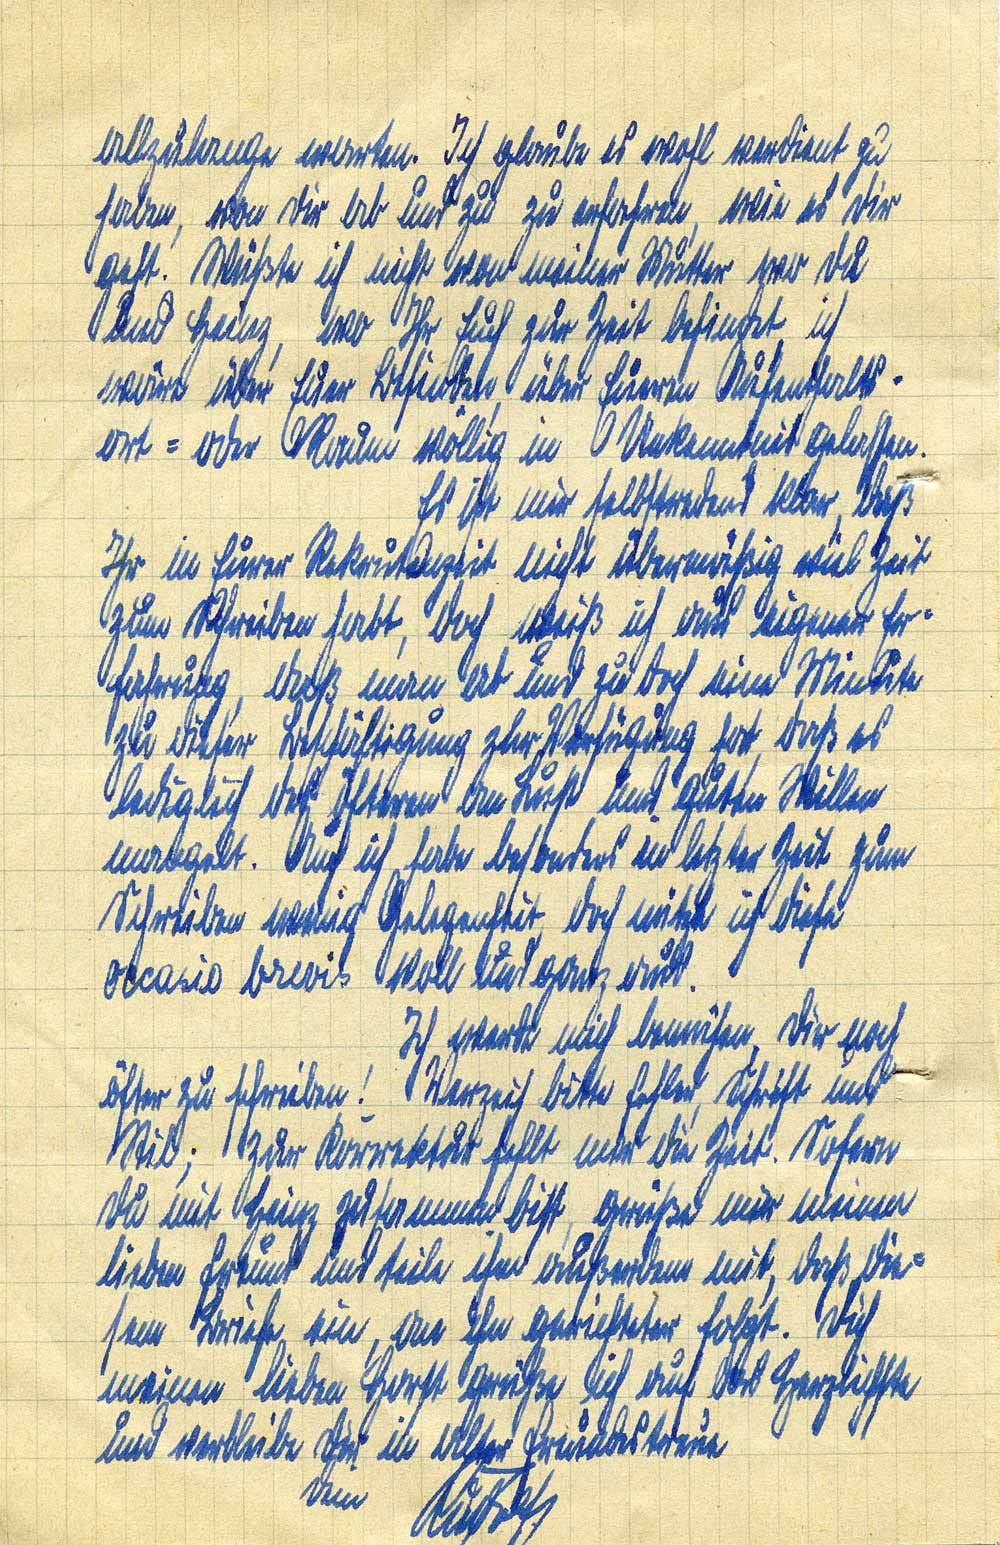 allzulange warten. Ich glaube es wohl verdient zu
haben, von Dir ab und zu zu erfahren, wie es Dir
geht. Wüßte ich nicht von meiner Mutter wo Du
und Heinz, wo Ihr Euch zur Zeit befindet, ich
wäre über Euer Befinden, über Eueren Aufenthalts-
ort = oder Raum völlig in Unkenntnis gelassen.
Es ist mir selbstredend klar, daß
Ihr in Eurer Rekrutenzeit nicht übermäßig viel Zeit
zum Schreiben habt, doch weiß ich aus eigener Er=
fahrung, daß man ab und zu doch eine Minute
zu dieser Beschäftigung zur Verfügung hat, daß es
lediglich des öfteren an Lust und guten Willen
mangelt. Auch ich habe besonders in letzter Zeit zum
Schreiben wenig Gelegenheit, doch nütze ich diese
occasio brevis voll und ganz aus.
Ich werde mich bemühen, Dir noch
öfter zu schreiben! Verzeih bitte Fehler, Schrift und
Stil; zur Korrektur fehlt mir die Zeit. Sofern
Du mit Heinz zusammen bist, grüße mir meinen
lieben Freund und teile ihm außerdem mit, daß die=
sem Briefe ein, an Ihn gerichteter folgt. Dich
meinen lieben Horst grüße ich auf das Herzlichste
und verbleibe Dir in alter Freundestreue
Dein Rudolf